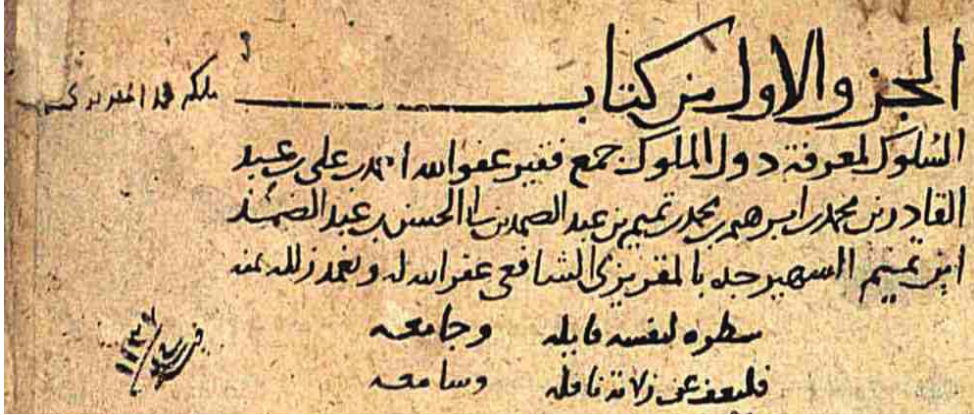 الجزو الاول من كتاب
السلوك لمعرفة دول الملوك جمع فقير عفو الله احمد بن علي بن عبد
القادر بن محمد بن ابرهيم بن محمد بن تميم بن عبد الصمد بن ابي الحسن بن عبد الصمد
ابن تميم الشهير جده بالمقريزي الشافعي غفر الله له وتغمد زلله بمنه
سطره لنفسه قايله وجامعه
فليعف عن زلاته ناقله وسامعه